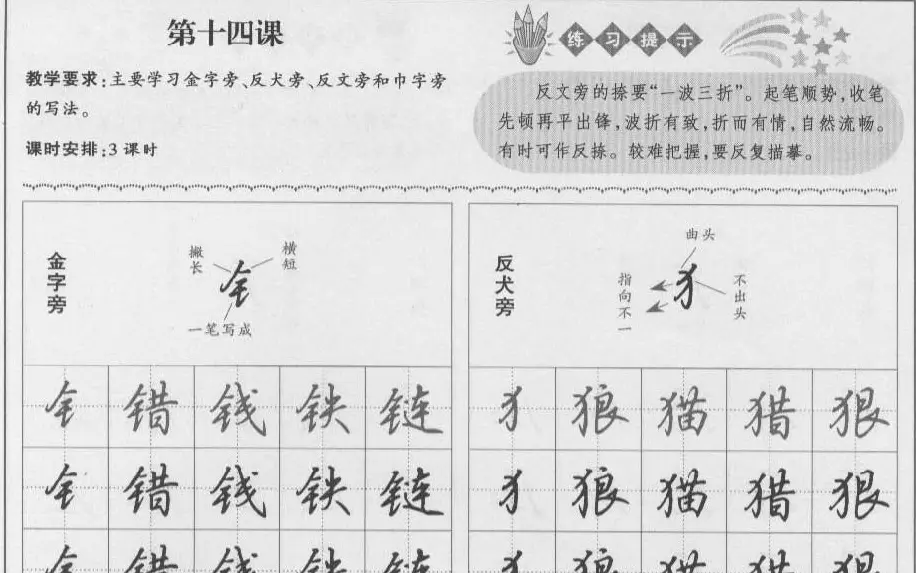 第十四课
教学要求:主要学习金字旁、反犬旁、反文旁和巾字旁
的写法。
课时安排:3课时
练习提示
反文旁的捺要“一波三折”。起笔顺势,收笔
先顿再平出锋,波折有致,折而有情,自然流畅。
有时可作反捺。较难把握,要反复描摹。
金字旁
撇长
横短
钅
一笔写成
钅 错 钱 铁 链
钅 错 钱 铁 链
钅 错 钱 铁 链
反犬旁
曲头
指向不一
犭
不出头
犭 狼 猫 猎 狠
犭 狼 猫 猎 狠
犭 狼 猫 猎 狠